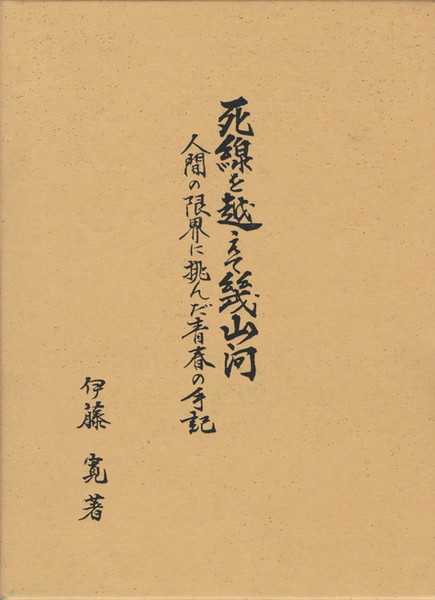 死線を越えて幾山河
人間の限界に挑んだ青春の手記
伊藤 寛 著